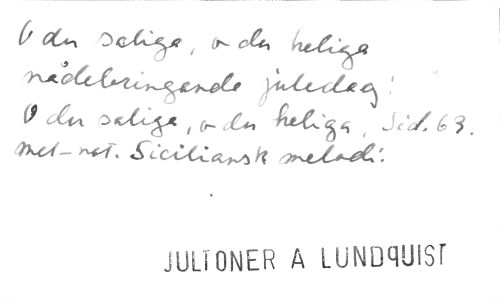 O du saliga, o du heliga
nådebringande juledag!
O du saliga, o du heliga, Sid. 63.
mel-not. Siciliansk melodi.
JULTONER A LUNDQUIST